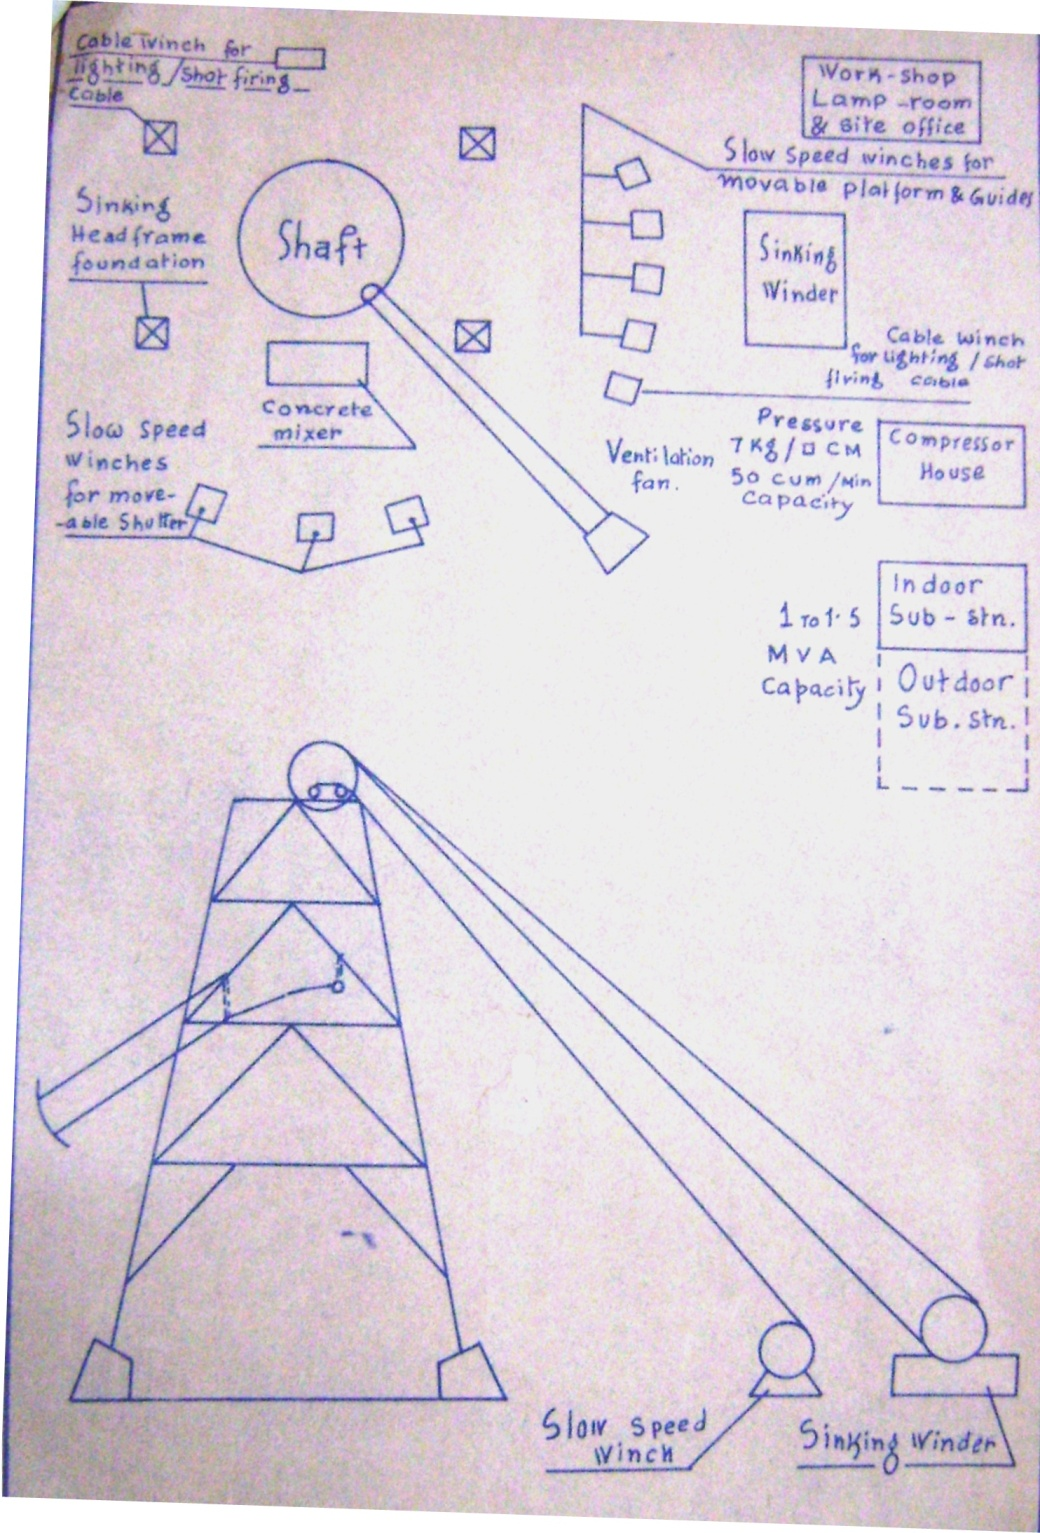 Cable Winch for
lighting / Shot firing
Cable
Work-shop
Lamp-room
& site office
Slow Speed winches for
movable platform & Guides
Sinking
Headframe
foundation
Shaft
Sinking
Winder
Cable Winch
for lighting / Shot
firing cable
Concrete
mixer
Slow Speed
Winches
for move-
-able Shutter
Ventilation
fan.
Pressure
7 Kg/□ CM
50 cum/Min
Capacity
Compressor
House
1 To 1.5
MVA
Capacity
Indoor
Sub-stn.
Outdoor
Sub.stn.
Slow Speed
Winch
Sinking Winder